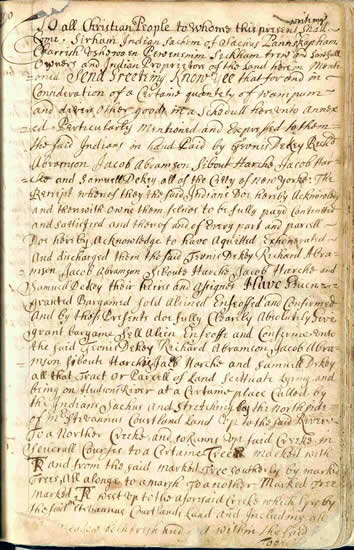 writing
To all Christian People to whome this present shall
Come, Sirham Indian Sachem of Sachus
Parrish Sackham true and Lawfull
Owners and Indian Proprietors of the Land here in Menti
oned Send Greeting Know Yee that for and in
Consideration of a Certaine quantety of wampum
and divers other goods in a Schedull here unto annex
ed Perticularly Mentioned and Expressed to them
the said Indians in hand Paid by Teunis Dekey Richd
Abramson Jacob Abramson Sibout Harche Jacob Har
che and Samuell Dekey all of the Citty of new Yorke The
Receipt whereof they the said Indians Doe hereby Acknowledg
and therewith owne them selves to be fully payd Contented
and sattisfied and thereof and of Every part and parcell
Doe hereby Acknowledge to have Aquitted Exhonerated
and Discharged them the said Teunis Dekey Richard Abra
mson Jacob Abramson Sibout Harche Jacob Harche and
Samuel Dekey their heirs and Assignes Have Given
granted Bargained sold Aliened Enfeoffed and Confirmed
And by thes Presents doe fully Clearly Absolutely Give
grant bargaine Sell Alien Enfeoffe and Confirme unto
the said Teunis Dekey Richard Abramson Jacob Abra
mson Sibout Harche Jacob Harche and Samuell Dekey
all that Tract or Parcell of Land Scittuate Lying and
being on Hudsons River at a Certaine place Called by
the Indians Sachus and Stretching by the North Side
of Stevannus Courtland Land up to the said River
To a Norther Creeke and so Runs up said Creeke in
Severall Courses to a Certaine Tree marked with
R and from the said marked Tree southerly by marked
Trees, all alonge to a marsh To another Marked tree
marked R west up to the aforsaid Creeke which lyes by
the said Stevannus Courtlands Land and Including all
within the said